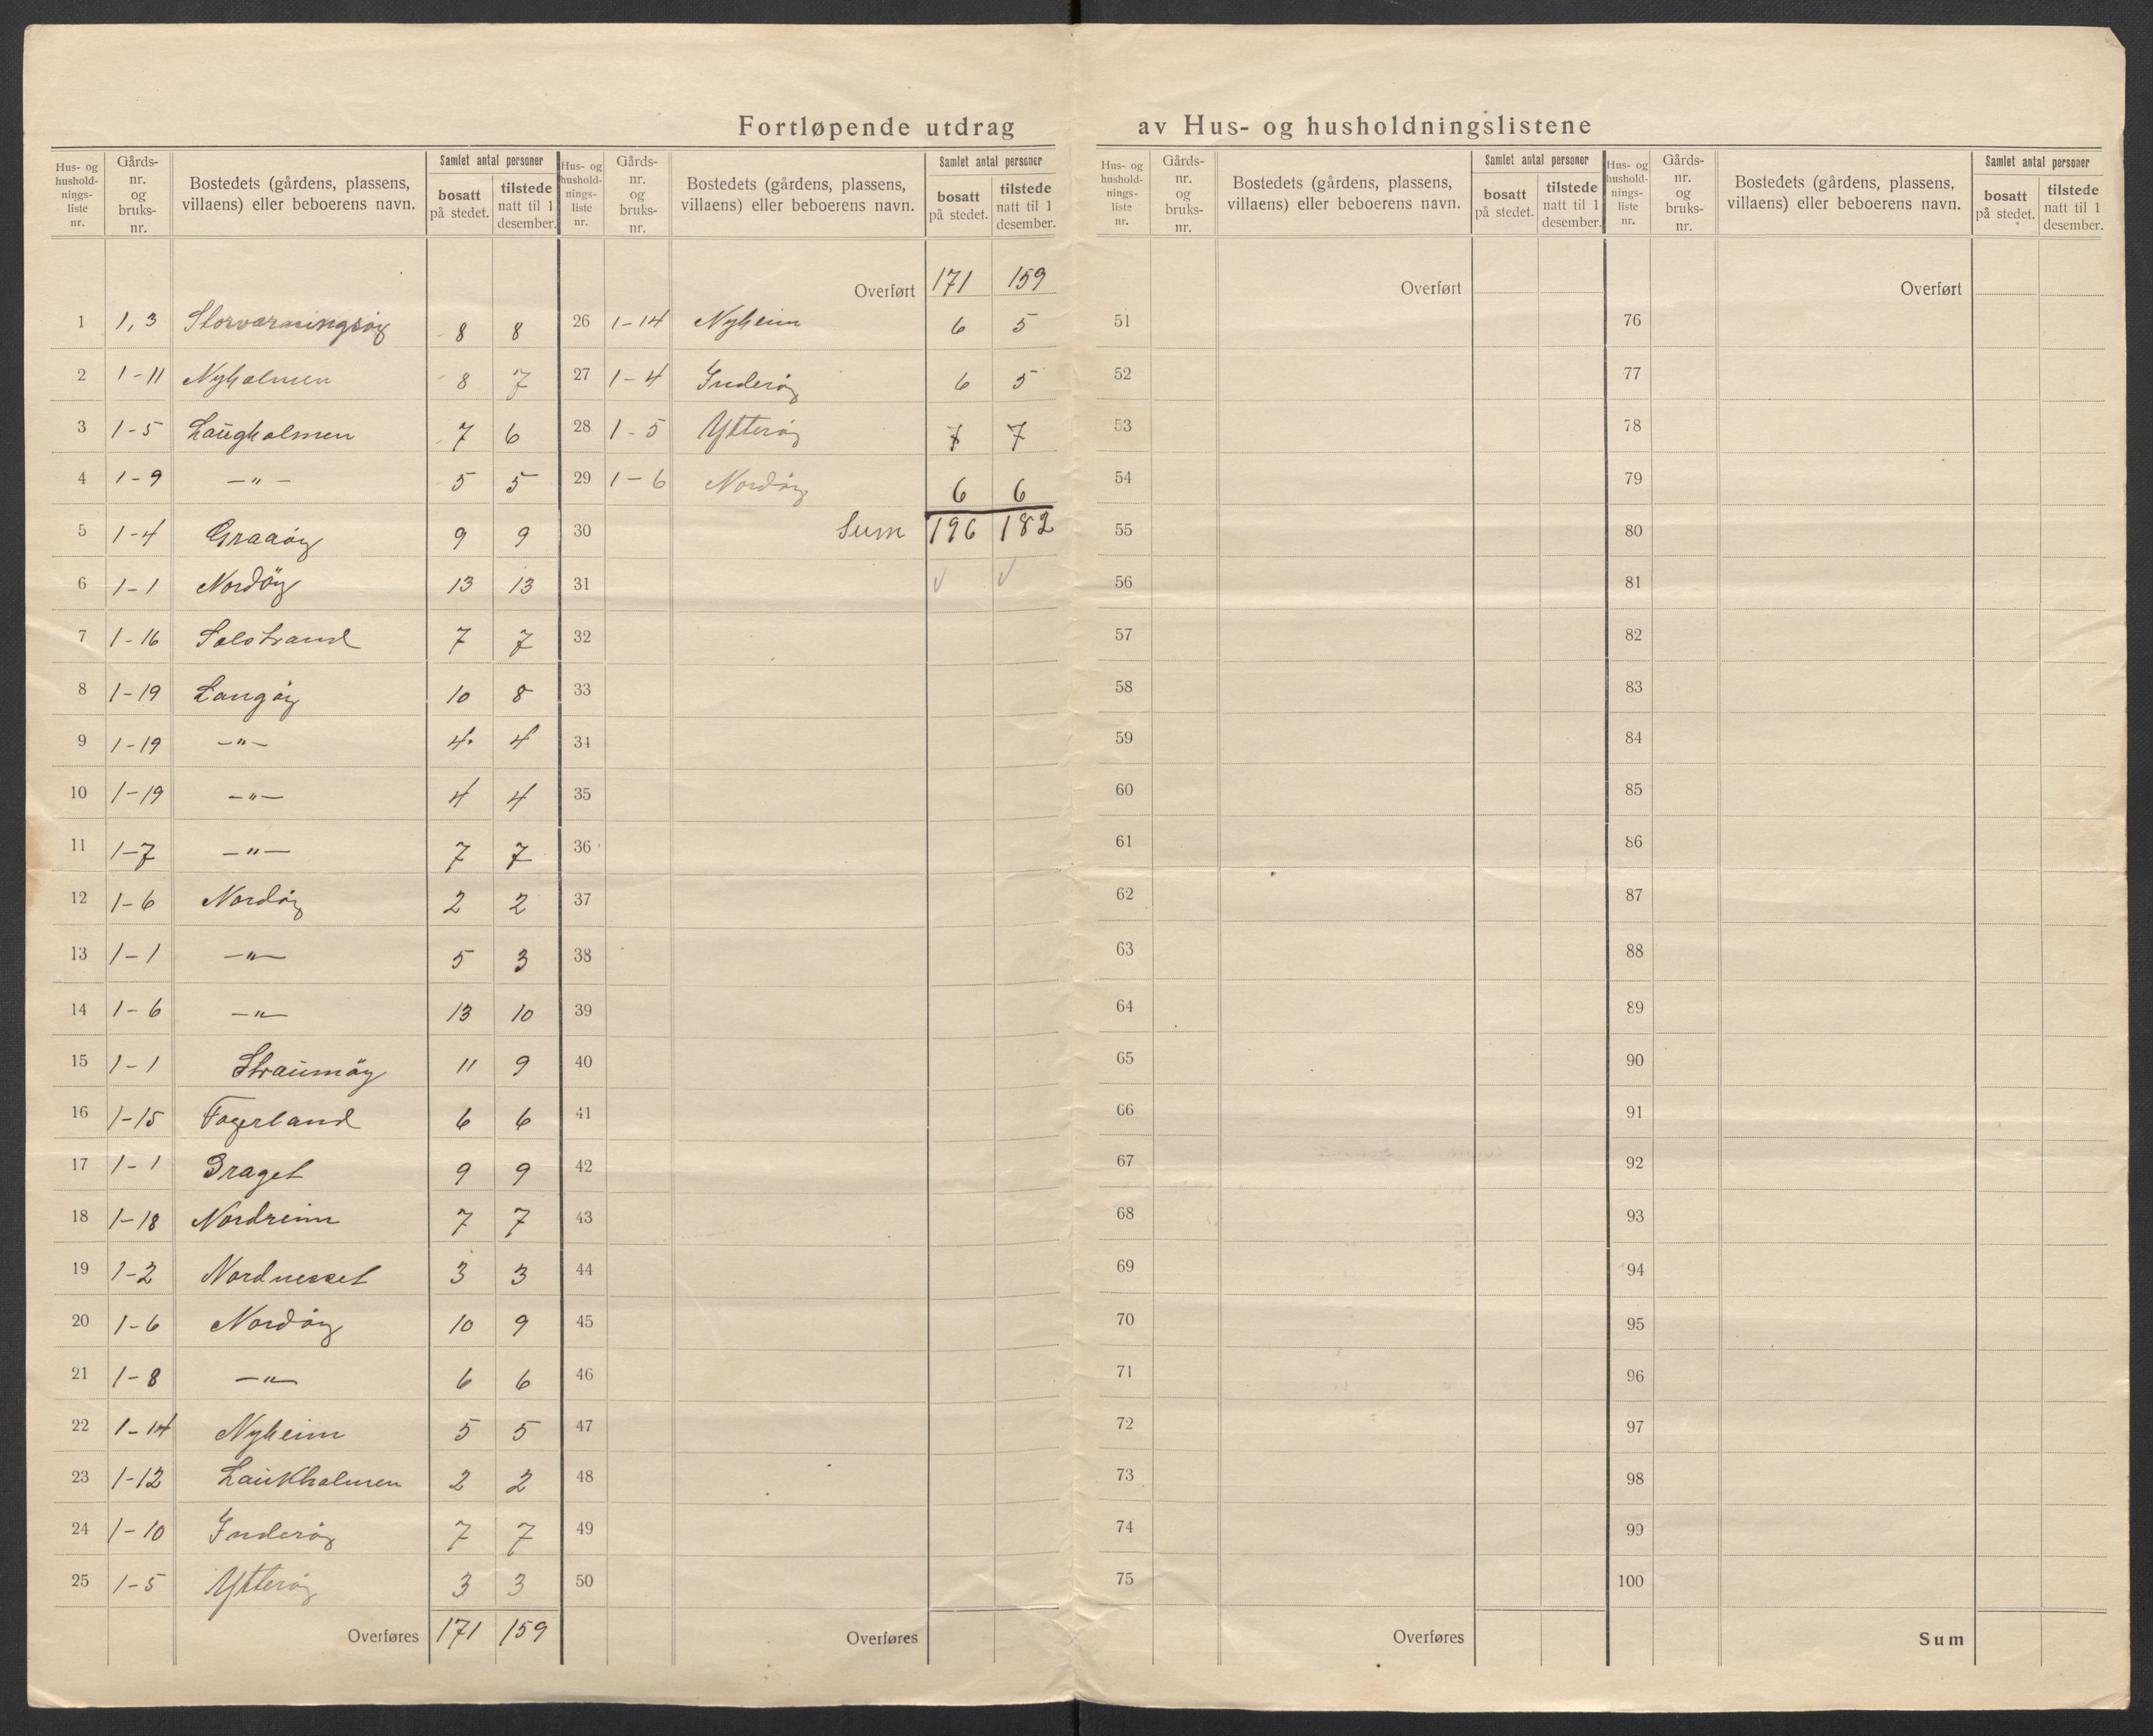 Fortløpende utdrag av Hus- og husholdningslistene
Hus- og hushold-nings-liste nr. Gårds-nr. og bruks-nr. Bostedets (gårdens, plassens, villaens) eller beboerens navn. Samlet antal personer bosatt på stedet. tilstede natt til 1 desember.
1 1,3 8 8
2 1-11 Nyholmen 8 7
3 1-5 Laugholmen 7 6
4 1-9 -"- 5 5
5 1-4 Graaöy 9 9
6 1-1 Nordöy 13 13
7 1-16 Solstrand 7 7
8 1-19 Langöy 10 8
9 1-19 -"- 4 4
10 1-19 -"- 4 4
11 1-7 -"- 7 7
12 1-6 Nordöy 2 2
13 1-1 -"- 5 3
14 1-6 -"- 13 10
15 1-1 Straumöy 11 9
16 1-15 Fagerland 6 6
17 1-1 Draget 9 9
18 1-18 Nordreim 7 7
19 1-2 Nordnesset 3 3
20 1-6 Nordöy 10 9
21 1-8 -"- 6 6
22 1-14 Nyheim 5 5
23 1-12 Laukholmen 2 2
24 1-10 Inderöy 7 7
25 1-5 Ytteröy 3 3
Overføres 171 159
Hus- og hushold-nings-liste nr. Gårds-nr. og bruks-nr. Bostedets (gårdens, plassens, villaens) eller beboerens navn. Samlet antal personer bosatt på stedet. tilstede natt til 1 desember.
Overført 171 159
26 1-14 Nyheim 6 5
27 1-4 Inderöy 6 5
28 1-5 Ytteröy 7 7
29 1-6 Nordöy 6 6
30 Sum 196 182
31
32
33
34
35
36
37
38
39
40
41
42
43
44
45
46
47
48
49
50
Overføres
Hus- og hushold-nings-liste nr. Gårds-nr. og bruks-nr. Bostedets (gårdens, plassens, villaens) eller beboerens navn. Samlet antal personer bosatt på stedet. tilstede natt til 1 desember.
Overført
51
52
53
54
55
56
57
58
59
60
61
62
63
64
65
66
67
68
69
70
71
72
73
74
75
Overføres
Hus- og hushold-nings-liste nr. Gårds-nr. og bruks-nr. Bostedets (gårdens, plassens, villaens) eller beboerens navn. Samlet antal personer bosatt på stedet. tilstede natt til 1 desember.
Overført
76
77
78
79
80
81
82
83
84
85
86
87
88
89
90
91
92
93
94
95
96
97
98
99
100
Sum